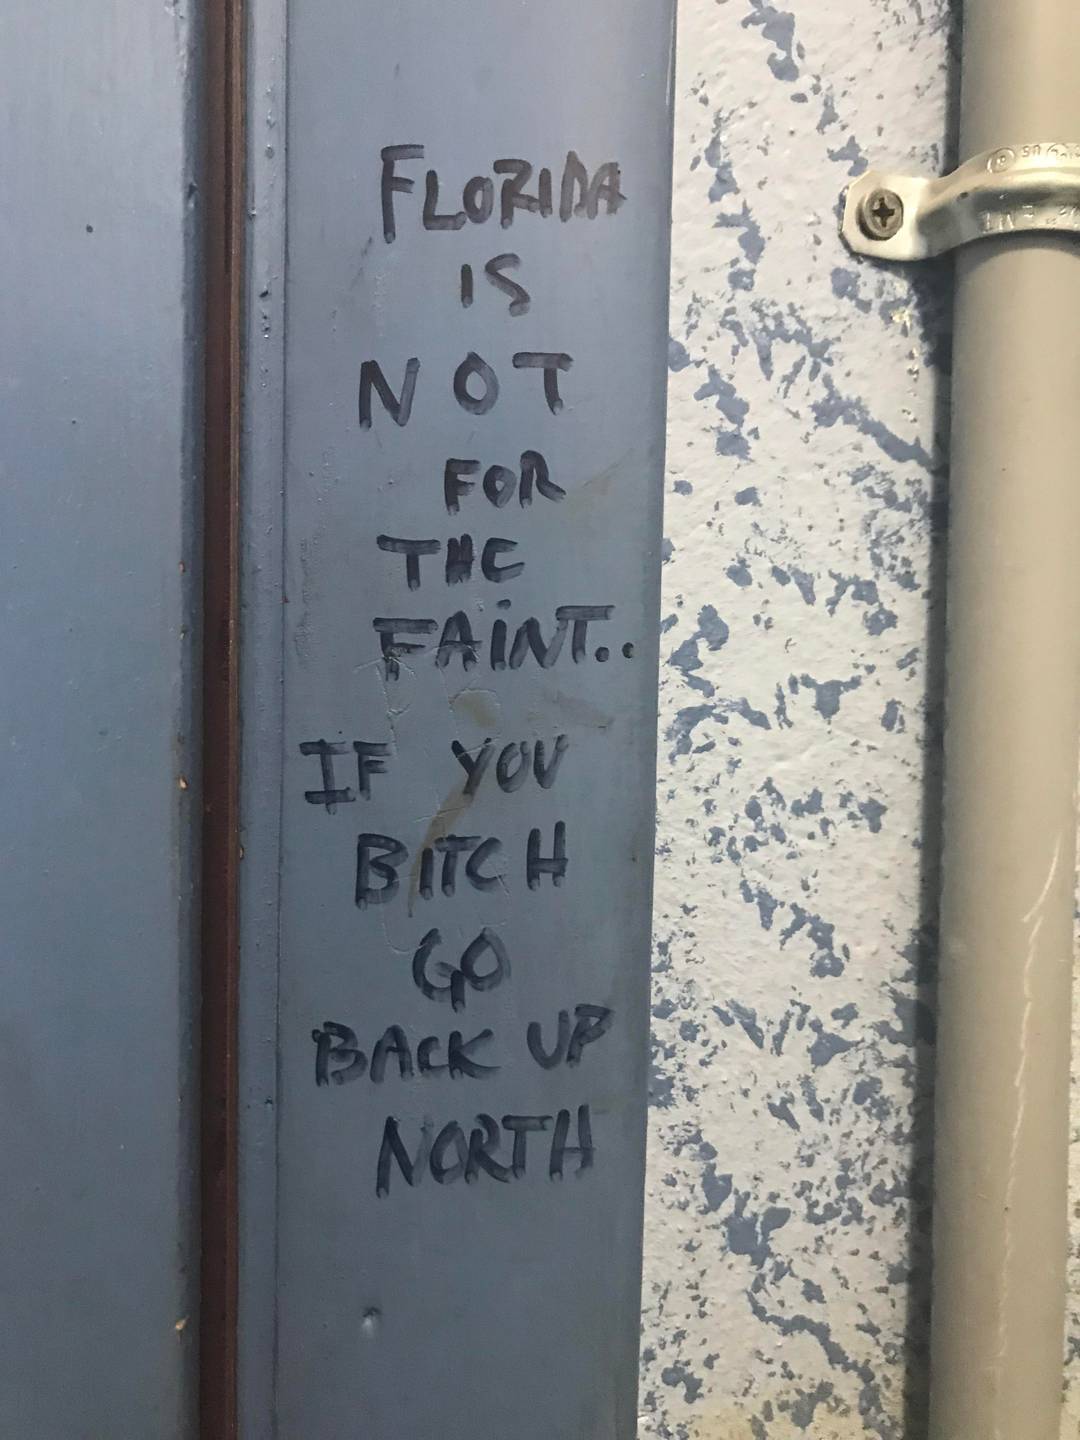 FLORIDA
IS
NOT
FOR
THE
FAINT..
IF YOU
BITCH
GO
BACK UP
NORTH